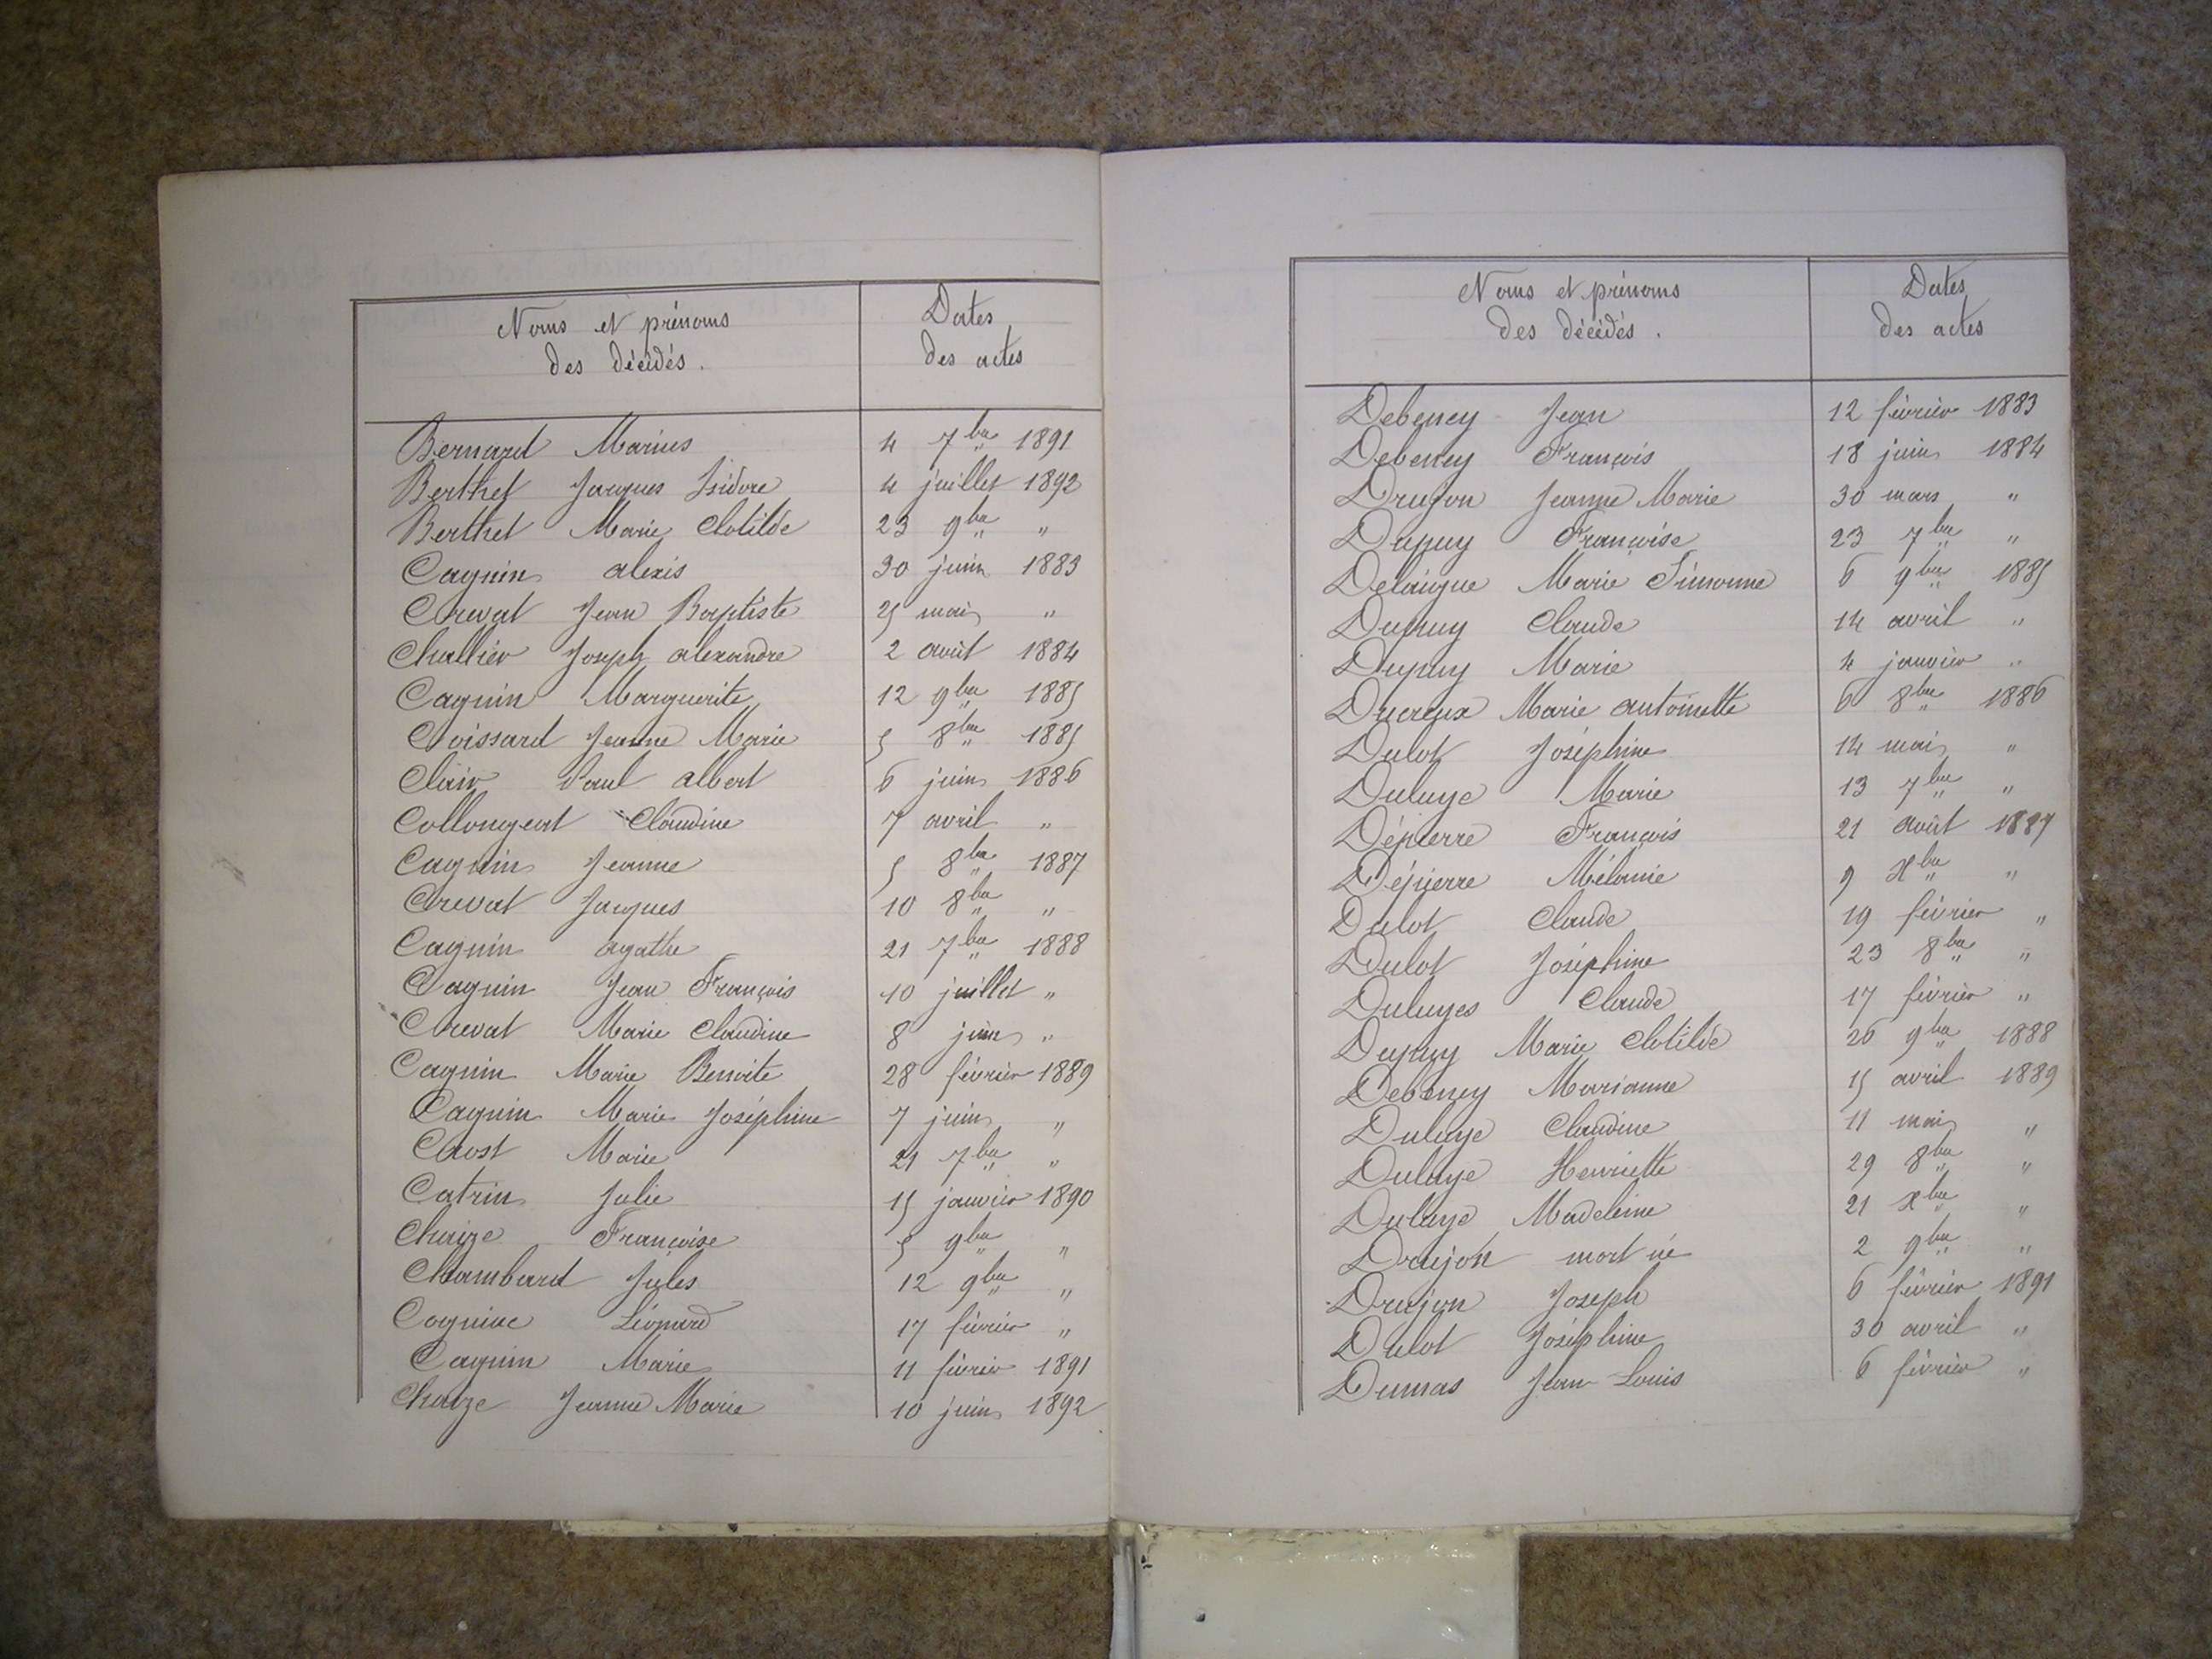 Noms et prénoms
des décédés.
Dates
des actes
Bernard Marius 4 7bre 1891
Berthet Jacques Isidore 4 juillet 1892
Berthet Marie Clotilde 23 9bre "
Caguin Alexis 30 juin 1883
Crevat Jean Baptiste 25 mai "
Challier Joseph Alexandre 2 août 1884
Caguin Marguerite 12 9bre 1885
Joissard Jeanne Marie 5 8bre 1885
Clair Paul Albert 6 juin 1886
Collongeat Claudine 7 avril "
Caguin Jeanne 5 8bre 1887
Crevat Jacques 10 8bre "
Caguin Agathe 21 7bre 1888
Caguin Jean François 10 juillet "
Crevat Marie Claudine 8 juin "
Caguin Marie Benoite 28 février 1889
Caguin Marie Joséphine 7 juin "
Crost Marie 21 7bre "
Catrin Julie 15 janvier 1890
Chaize Françoise 5 9bre "
Chambard Jules 12 9bre "
Cogniac Léonard 17 février "
Caguin Marie 11 février 1891
Chaize Jeanne Marie 10 juin 1892
Noms et prénoms
des décédés.
Dates
des actes
Debeney Jean 12 février 1883
Debeney François 18 juin 1884
Drujon Jeanne Marie 30 mars "
Dupuy Françoise 23 7bre "
Delaigue Marie Simonne 6 9bre 1885
Dupuy Claude 14 avril "
Dupuy Marie 4 janvier "
Ducreux Marie Antoinette 6 8bre 1886
Dulot Joséphine 14 mai "
Duluye Marie 13 7bre "
Dépierre François 21 août 1887
Dépierre Mélanie 9 Xbre "
Dulot Claude 19 février "
Dulot Joséphine 23 8bre "
Duluyes Claude 17 février "
Dupuy Marie Clotilde 26 9bre 1888
Debeney Marianne 15 avril 1889
Duluye Claudine 11 mai "
Duluye Henriette 29 8bre "
Duluye Madeleine 21 Xbre "
Drujon mort né 2 9bre "
Drujon Joseph 6 février 1891
Dulot Joséphine 30 avril "
Dumas Jean Louis 6 février "